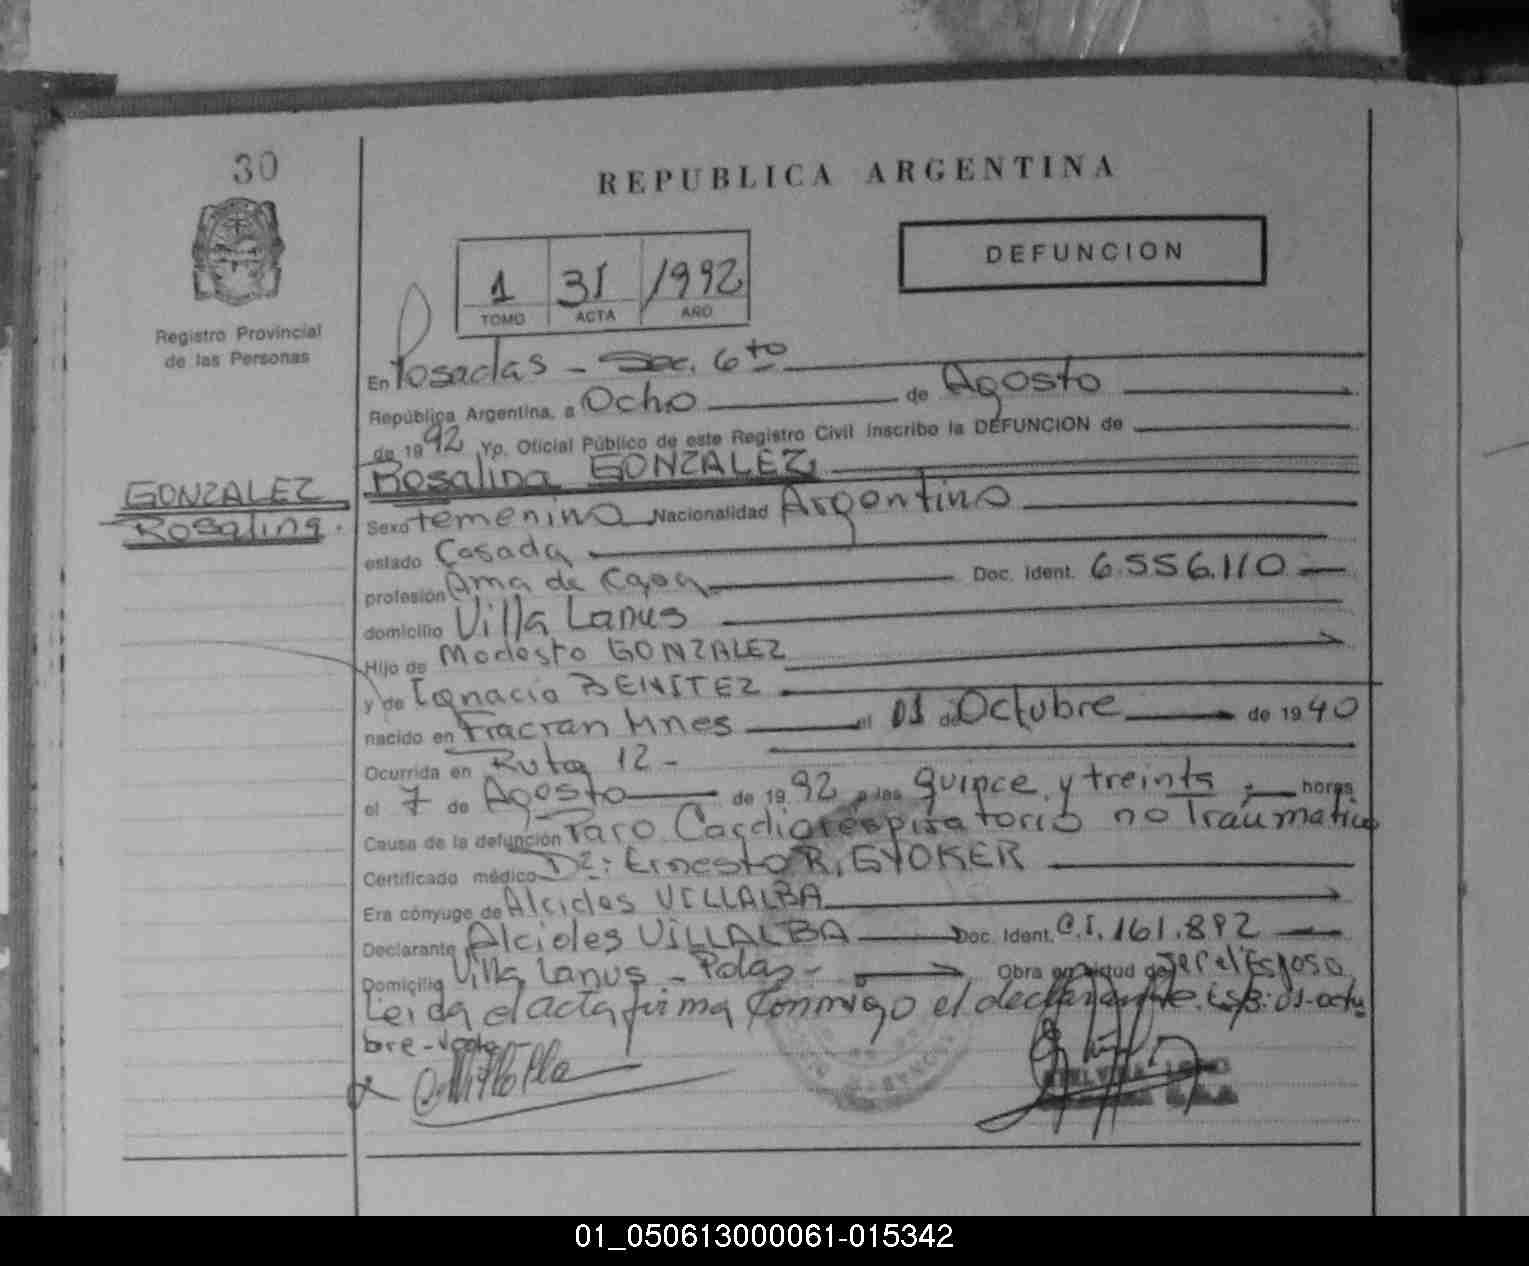 30
REPUBLICA ARGENTINA
DEFUNCION
1 31 1992
TOMO ACTA AÑO
Registro Provincial
de las Personas
En Posadas - Sec. 6to
República Argentina, a Ocho de Agosto
de 1992 Yo, Oficial Público de este Registro Civil inscribo la DEFUNCION de
GONZALEZ
Rosalina.
Rosalina GONZALEZ
Sexo femenino Nacionalidad Argentina
estado Casada
profesión Ama de Casa Doc. Ident. 6.556.110
domicilio Villa Lanus
Hijo de Modesto GONZALEZ
y de Ignacia BENITEZ
nacido en Fracran Mnes el 01 de Octubre de 1940
Ocurrida en Ruta 12 -
el 7 de Agosto de 1992 a las quince y treinta horas
Causa de la defunción Paro Cardiorespiratorio no Traumatico
Certificado médico Dr: Ernesto R. GYOKER
Era cónyuge de Alcides VILLALBA
Declarante Alcides VILLALBA Doc. Ident. C.I. 161.892
Domicilio Villa Lanus - Pdas - Obra en virtud de ser el Esposo
Leida el acta firma conmigo el declarante. E/S/B: 01-octu
bre - Vale -
01_050613000061-015342